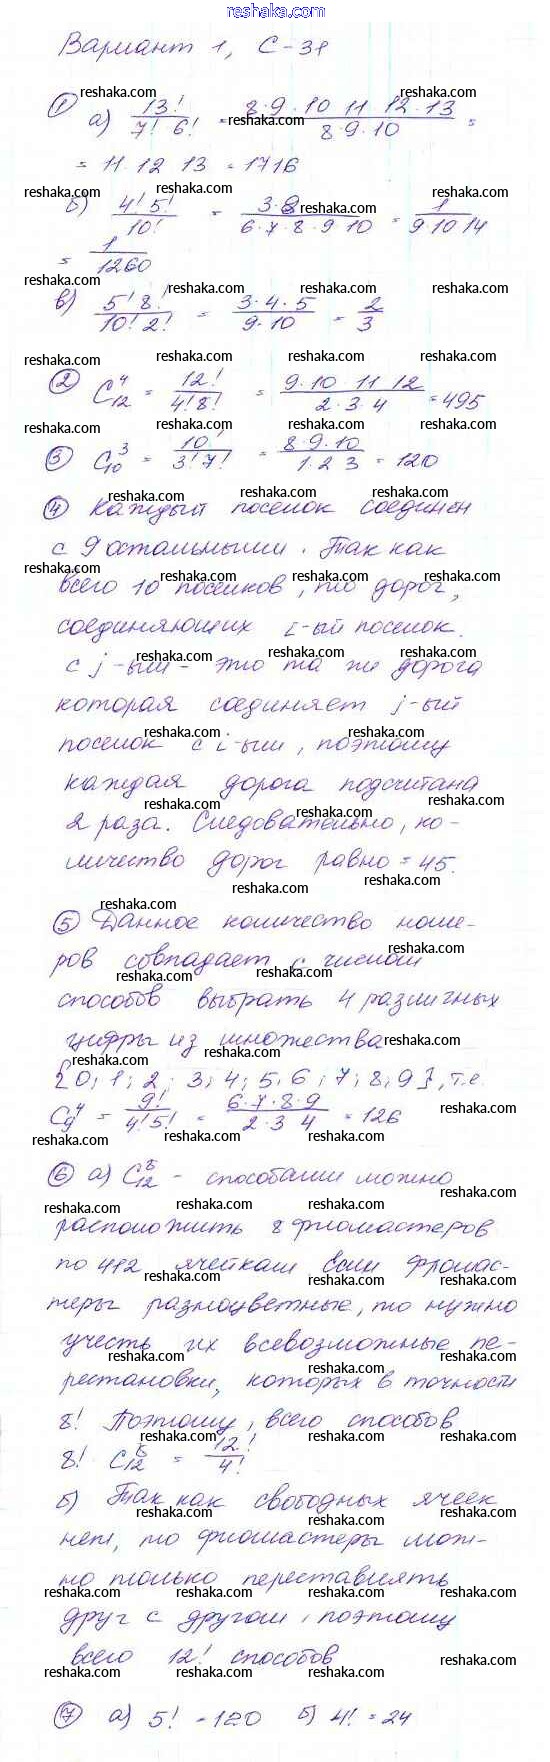 reshaka.com
Вариант 1, С-31
① а) 13! / 7! 6! = 8·9·10 11 12·13 / 8·9·10 =
= 11 12 13 = 1716
б) 4! 5! / 10! = 3·8 / 6·7·8·9·10 = 1 / 9·10 14
= 1 / 1260
в) 5! 8! / 10! 2! = 3·4·5 / 9·10 = 2 / 3
② C₁₂⁴ = 12! / 4! 8! = 9·10 11 12 / 2·3·4 = 495
③ C₁₀³ = 10! / 3! 7! = 8·9·10 / 1·2 3 = 120
④ Каждый поселок соединен
с 9 остальными. Так как
всего 10 поселков, то дорог,
соединяющих i-ый поселок
с j-ым - это та же дорога
которая соединяет j-ый
поселок с i-ым, поэтому
каждая дорога подсчитана
2 раза. Следовательно, ко-
личество дорог равно = 45.
⑤ Данное количество номе-
ров совпадает с числом
способов выбрать 4 различных
цифры из множества
{0; 1; 2; 3; 4; 5; 6; 7; 8; 9}, т.е.
C₉⁴ = 9! / 4! 5! = 6·7·8·9 / 2·3 4 = 126
⑥ а) C₁₂⁸ - способами можно
расположить 8 фломастеров
по 412 ячейкам Если флома-
теры разноцветные, то нужно
учесть их всевозможные пе-
рестановки, которых в точности
8! Поэтому, всего способов
8! C₁₂⁸ = 12! / 4!
б) Так как свободных ячеек
нет, то фломастеры мож-
но только переставлять
друг с другом, поэтому
всего 12! способов
⑦ а) 5! = 120 б) 4! = 24